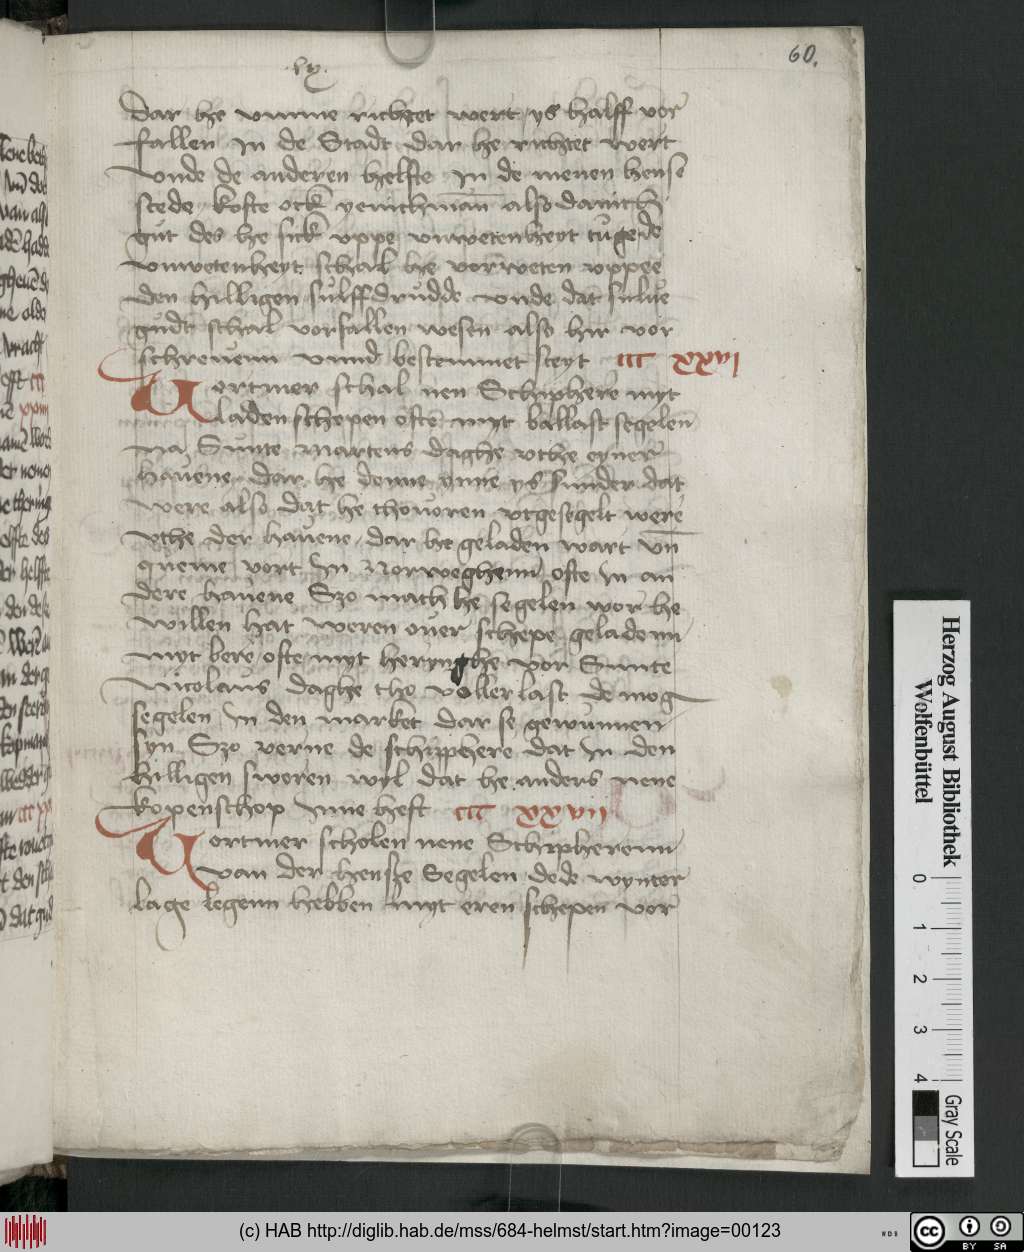 lx.
60.
dar he vmme richtet wert ys halff vor
fallen In de Stadt dar he richtet wert
vnde de anderen helfte In de menen hense
stede koste ock yemichman also danich
gut des he sick vppe vnwetenheyt tugede
vnwetenheyt schal he vorweten vppe
den hilligen sulff drudde vnde dat sulue
gudt schal vorfallen wesen also hir vor
schreuenn vnnd bestemmet steyt ccc xxvj
Vortmer schal nen Schiphere myt
laden schepen ofte myt ballast segelen
na Sunte Martens daghe vthe eyner
hauene dar he denne ynne ys sunder dat
were also dat he thouoren vtgesegelt were
vthe der hauene dar he geladen wart vn
queme vort In Norweghenn ofte In an
dere hauene Szo mach he segelen wor he
willen hat weren ouer schepe geladenn
myt bere ofte myt herynghe vor Sunte
Nicolaus daghe tho voller last de mog
segelen In den market dar se gewunnen
syn Szo verne de schipphere dat In den
hilligen sweren wyl dat he anders nene
kopenschop Inne heft ccc xxvii
Vortmer scholen nene Schipherenn
van der hensze Segelen de de wynter
lage legenn hebben myt eren schepen vor
Herzog August Bibliothek
Wolfenbüttel
0 1 2 3 4
Gray Scale
(c) HAB http://diglib.hab.de/mss/684-helmst/start.htm?image=00123
WDB
cc BY SA